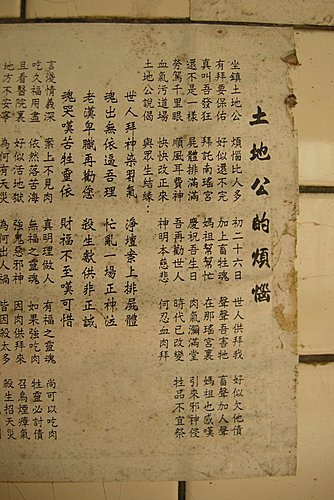 土地公的煩惱
坐鎮土地公　煩惱比人多　初二十六日　世人供拜我　好似欠他債
有拜要保佑　好似還不完　加上畜牲魂　聲聲吾害牠　畜聲加人聲
真叫吾發狂　拜託南瑤宮　媽祖幫幫忙　在那瑤宮裏　媽祖也感嘆
還不是一樣　屍體排滿滿　慶祝吾生日　肉氣瀰滿堂　引來邪神侵
勞駕千里眼　順風耳費神　吾再勸世人　時代已改變　牲品不宜祭
血氣污道場　快快改正來　神明本慈悲　何忍血肉拜
土地公說偈　與眾生結緣
世人拜神染邪氣　淨檀案上排屍體
魂出無依逼吾理　忙亂一場正神怯
老漢卑職再勸您　殺生獻供非正誠
魂哭嘆苦牲靈依　財福不至莫可惜
言淺情義深　案上不見肉　真明理做人　有福之靈魂　尚可以吃肉
吃久福用盡　依然落苦海　無福之靈魂　如果強吃肉　牲靈必討債
且看醫院裏　好似活地獄　強鬼惡邪神　因肉供拜來　召烏煙瘴氣
地方不安寧　為何有天災　為何出人禍　皆因殺太多　殺生招天災